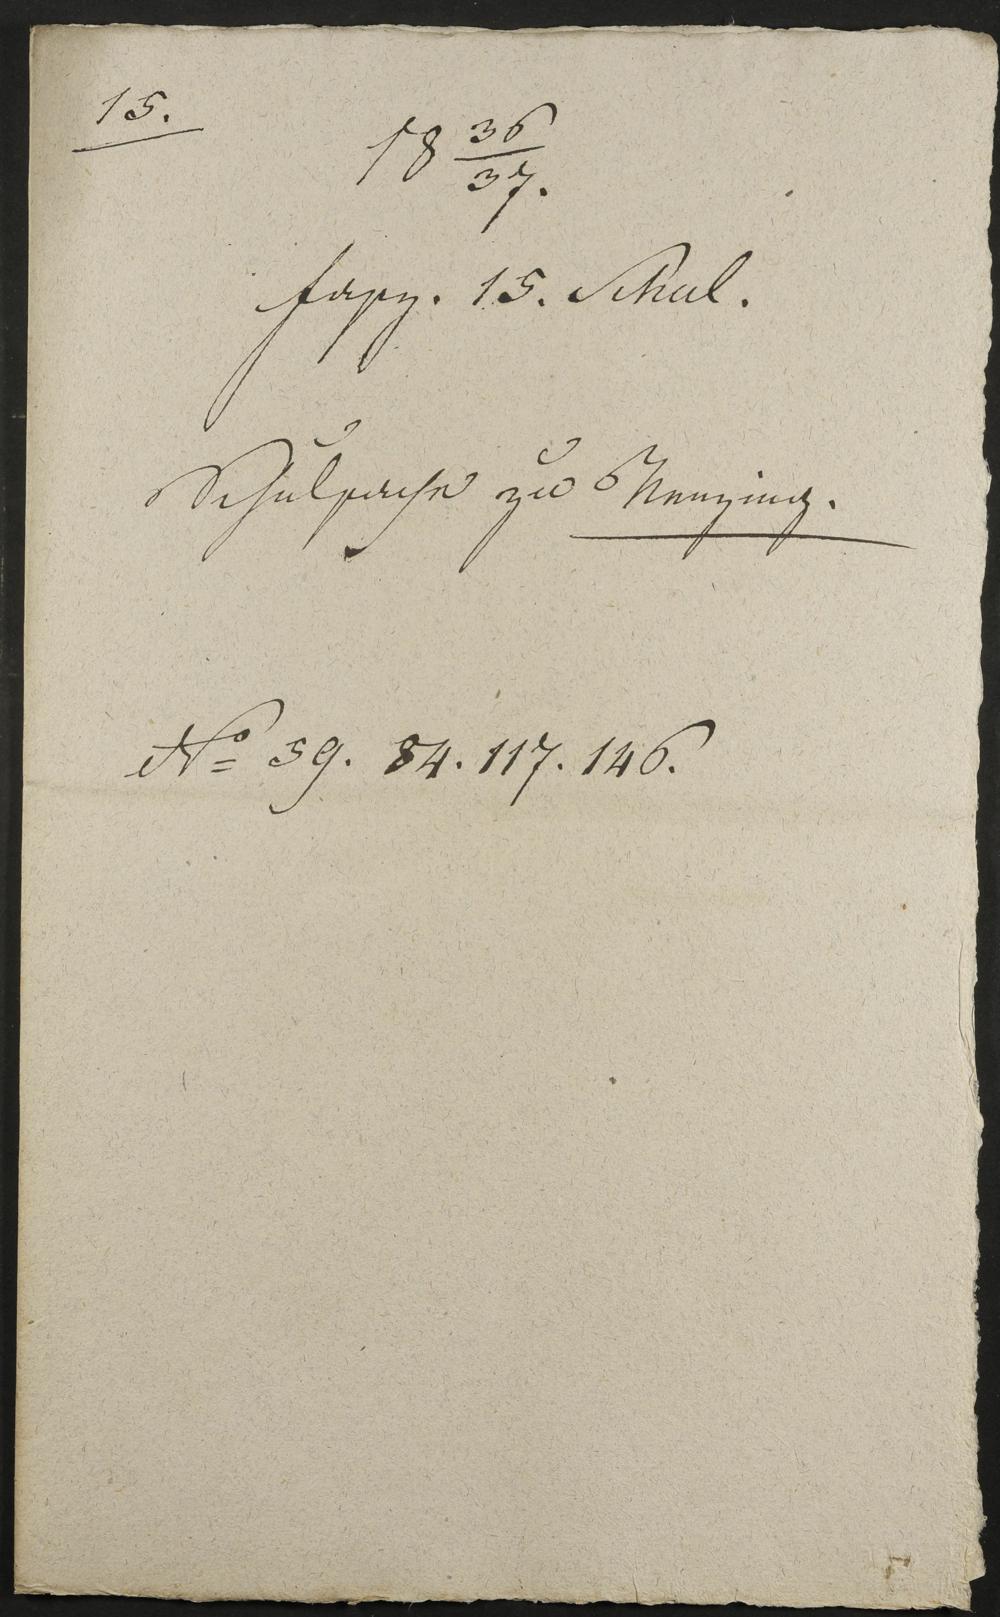 15.
18 36/37.
fasz. 15. Schul.
Schulsache zu Nenzing.
No 59. 84. 117. 146.